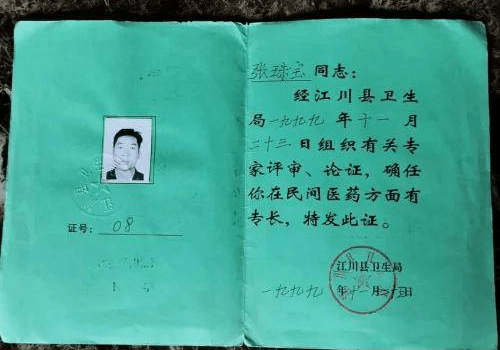 证号: 08
张珠宝 同志:
经江川县卫生
局一九九九年十一月
二十三日组织有关专
家评审、论证,确任
你在民间医药方面有
专长,特发此证。
江川县卫生局
一九九九年十一月 日